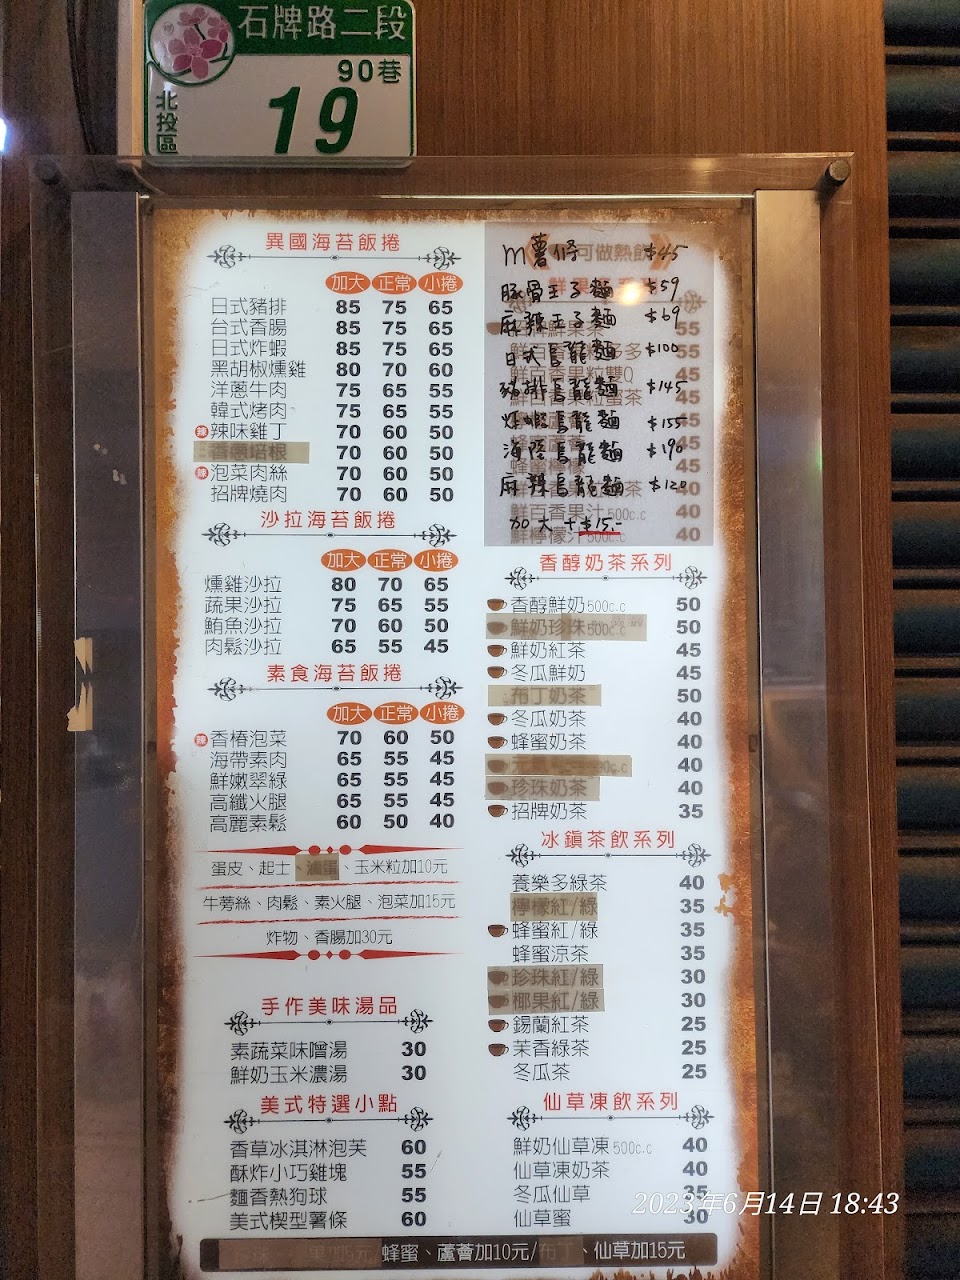 石牌路二段
90巷
北投區
19
異國海苔飯捲
加大 正常 小捲
日式豬排 85 75 65
台式香腸 85 75 65
日式炸蝦 85 75 65
黑胡椒燻雞 80 70 60
洋蔥牛肉 75 65 55
韓式烤肉 75 65 55
辣 辣味雞丁 70 60 50
香蔥培根 70 60 50
辣 泡菜肉絲 70 60 50
招牌燒肉 70 60 50
沙拉海苔飯捲
加大 正常 小捲
燻雞沙拉 80 70 65
蔬果沙拉 75 65 55
鮪魚沙拉 70 60 50
肉鬆沙拉 65 55 45
素食海苔飯捲
加大 正常 小捲
辣 香椿泡菜 70 60 50
海帶素肉 65 55 45
鮮嫩翠綠 65 55 45
高纖火腿 65 55 45
高麗素鬆 60 50 40
蛋皮、起士、滷蛋、玉米粒加10元
牛蒡絲、肉鬆、素火腿、泡菜加15元
炸物、香腸加30元
手作美味湯品
素蔬菜味噌湯 30
鮮奶玉米濃湯 30
美式特選小點
香草冰淇淋泡芙 60
酥炸小巧雞塊 55
麵香熱狗球 55
美式楔型薯條 60
可做熱飲
m薯仔 $45
豚骨王子麵 $59
麻辣王子麵 $69
日式烏龍麵 $100
豬排烏龍麵 $145
炸蝦烏龍麵 $155
海陸烏龍麵 $190
麻辣烏龍麵 $120
加大+$15.-
55
55
45
45
45
45
45
40
鮮百香果汁500c.c 40
鮮檸檬汁500c.c 40
香醇奶茶系列
香醇鮮奶500c.c 50
鮮奶珍珠500c.c 50
鮮奶紅茶 45
冬瓜鮮奶 45
布丁奶茶 50
冬瓜奶茶 40
蜂蜜奶茶 40
40
珍珠奶茶 40
招牌奶茶 35
冰鎮茶飲系列
養樂多綠茶 40
檸檬紅/綠 35
蜂蜜紅/綠 35
蜂蜜涼茶 35
珍珠紅/綠 30
椰果紅/綠 30
錫蘭紅茶 25
茉香綠茶 25
冬瓜茶 25
仙草凍飲系列
鮮奶仙草凍500c.c 40
仙草凍奶茶 40
冬瓜仙草 35
仙草蜜 30
蜂蜜、蘆薈加10元/布丁、仙草加15元
2023年6月14日 18:43